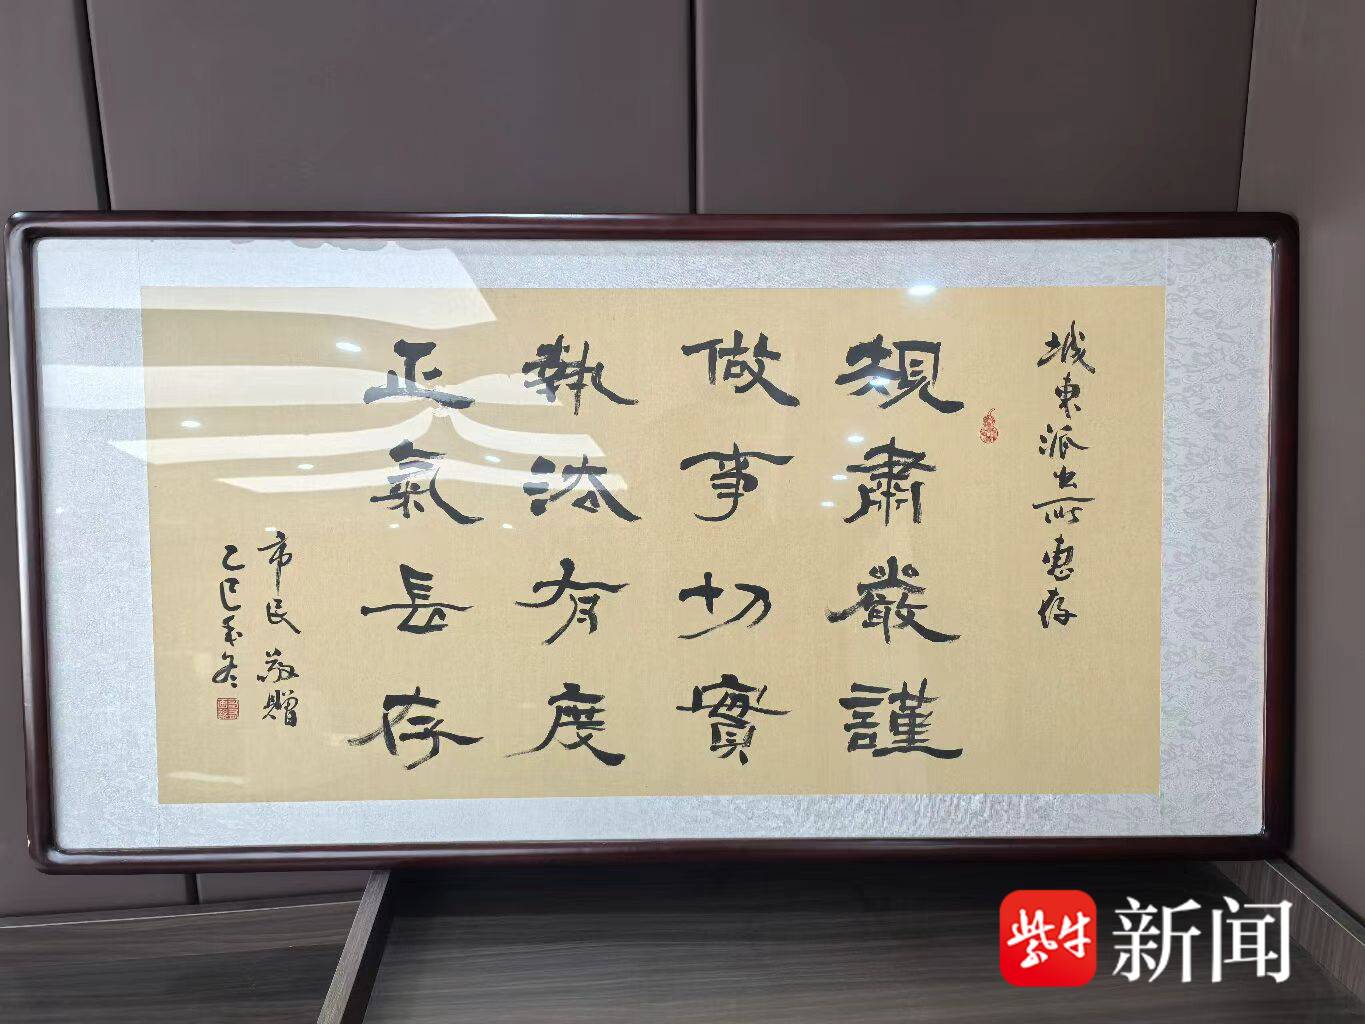 城東派出所惠存
規肅嚴謹
做事切實
執法有度
正氣長存
市民敬贈
乙巳年冬
紫牛新闻